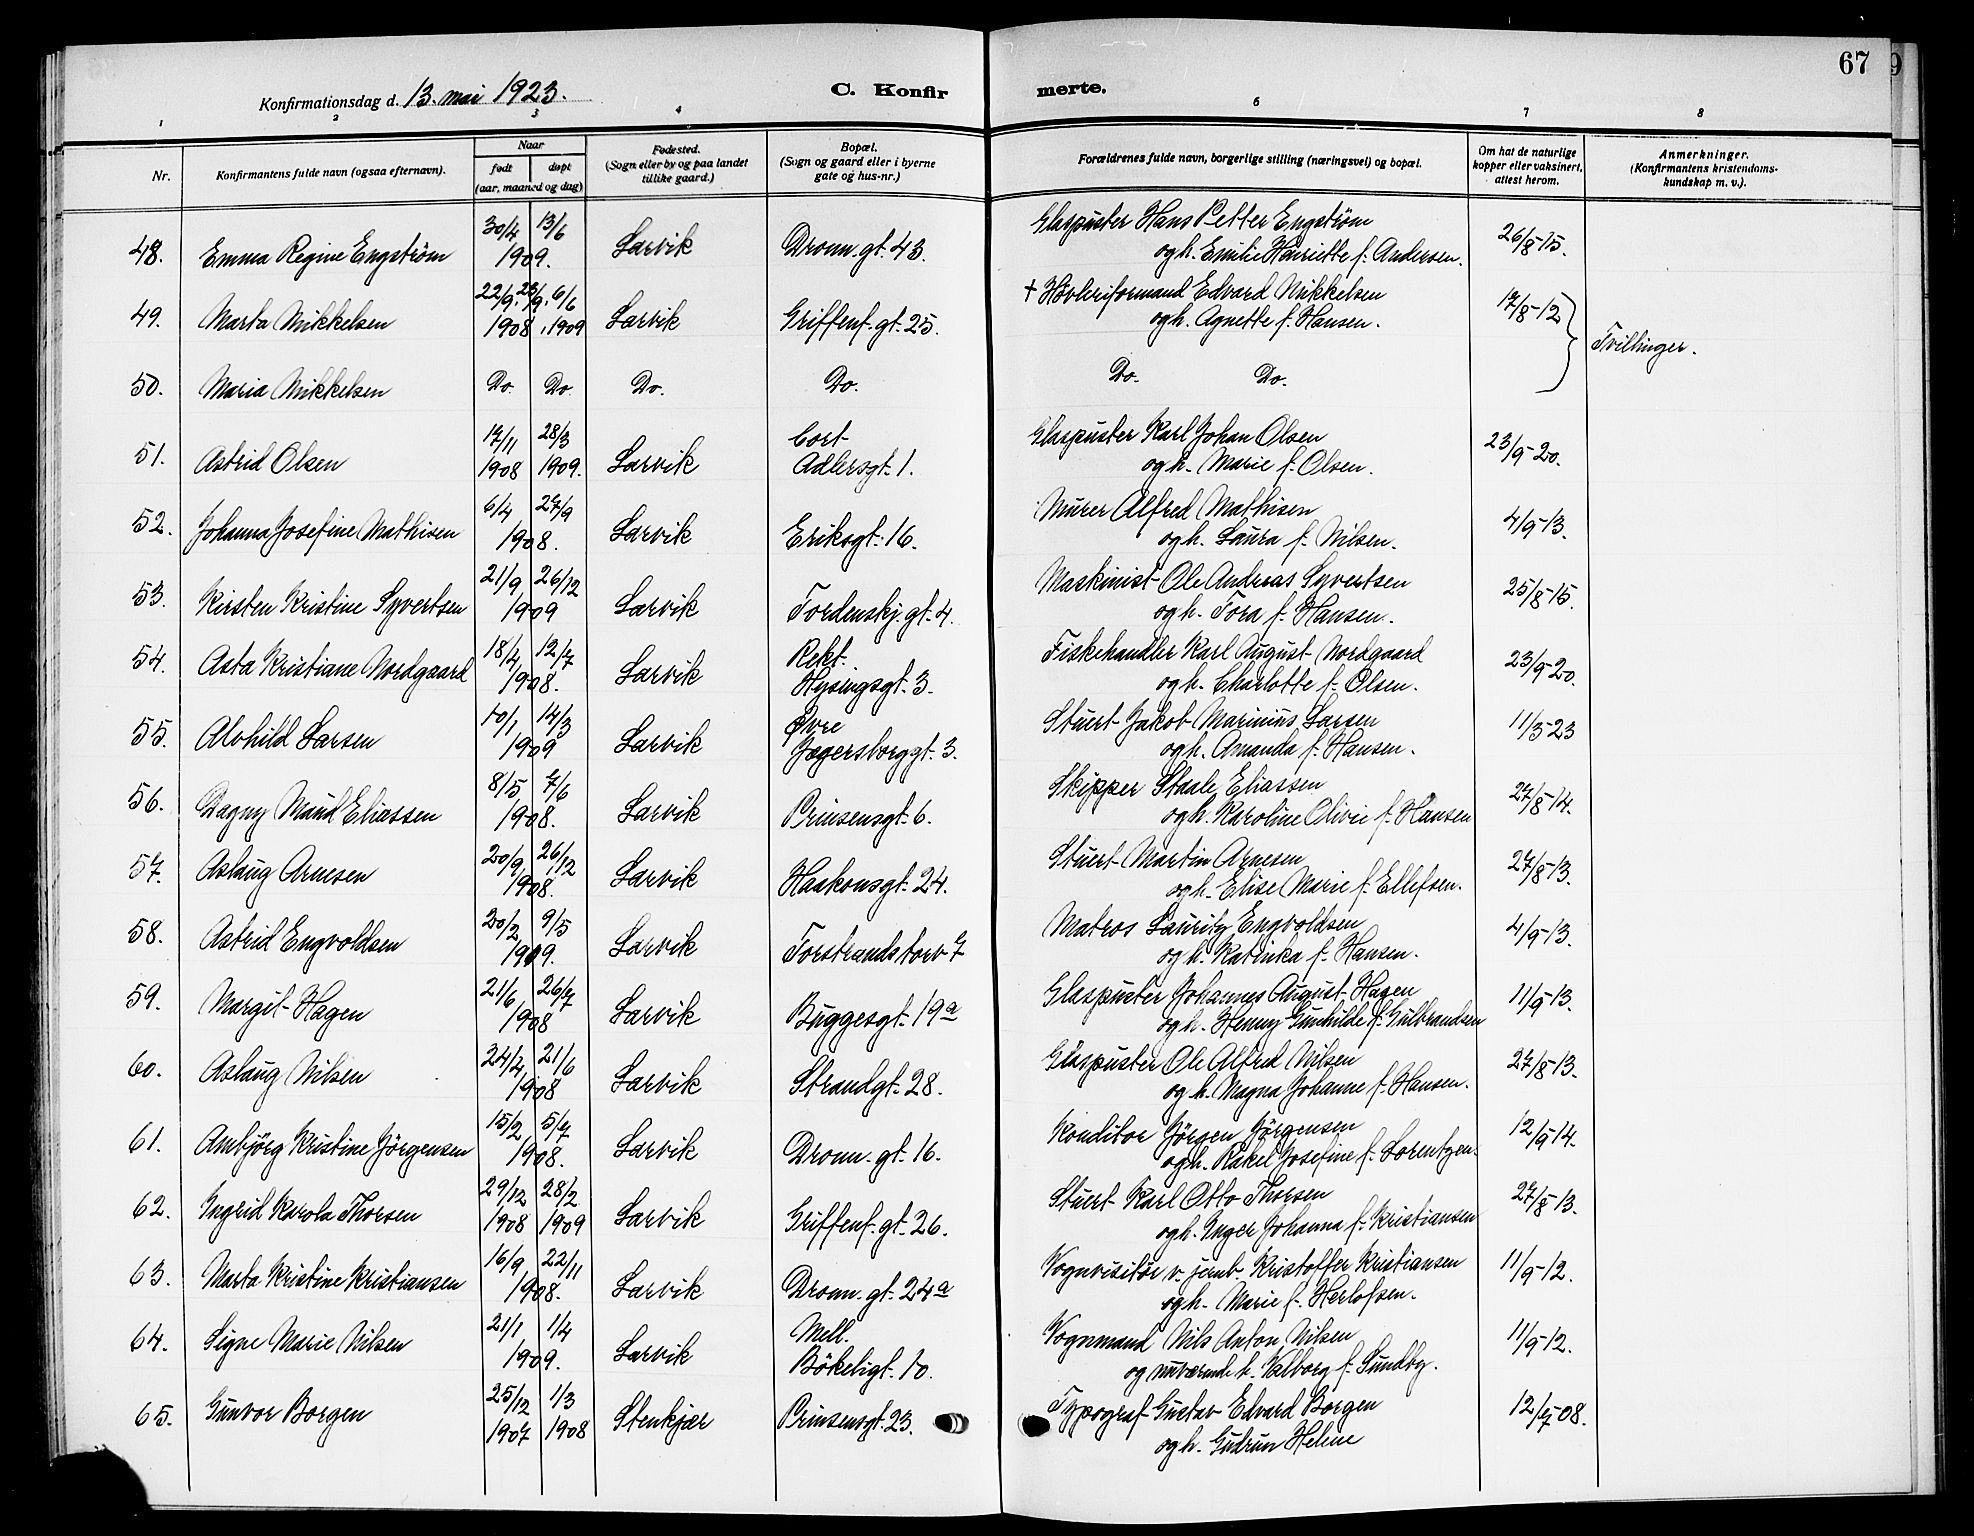 67
9
Konfirmationsdag d. 13. mai 1923.
C. Konfir
merte.
1 2 3 4 6 7 8
Nr.
Konfirmantens fulde navn (ogsaa efternavn).
Naar
født døpt
(aar, maaned og dag)
Fødested.
(Sogn eller by og paa landet
tillike gaard.)
Bopæl.
(Sogn og gaard eller i byerne
gate og hus-nr.)
Forældrenes fulde navn, borgerlige stilling (næringsvei) og bopæl.
Om hat de naturlige
kopper eller vaksinert,
attest herom.
Anmerkninger.
(Konfirmantens kristendoms-
kundskap m. v.).
30/4 13/6 Glaspuster Hans Petter Engstrøm
48. Emma Regine Engström 1909. Larvik Dronn. gt. 43. og h. Emilie Henriette f. Andersen. 26/8-15.
22/9. 23/9. 6/6 + Høvleriformand Edvard Mikkelsen
49. Marta Mikkelsen 1908. 1909 Larvik Griffenf. gt. 25. og h. Agnette f. Hansen. 17/8-12
Tvillinger.
50. Maria Mikkelsen Do. Do. Do. Do. Do. Do.
17/11 28/3 Cort Glaspuster Karl Johan Olsen
51. Astrid Olsen 1908 1909. Larvik Adlersgt. 1. og h. Marie f. Olsen. 23/9-20.
6/4 27/9 Murer Alfred Mathisen
52. Johanna Josefine Mathisen 1908. Larvik Eriksgt. 16. og h. Laura f. Nilsen. 4/9-13.
21/9 26/12 Maskinist Ole Andreas Syvertsen
53. Kirsten Kristine Syvertsen 1909 Larvik Tordenskj. gt. 4. og h. Tora f. Hansen. 25/8-15.
18/4 12/7 Rekt. Fiskehandler Karl August Nordgaard
54. Asta Kristiane Nordgaard 1908. Larvik Hysingsgt. 3. og h. Charlotte f. Olsen. 23/9-20.
10/1 14/3 Øvre Stuert Jakob Marinius Larsen
55. Alvhild Larsen 1909 Larvik Jegersborggt. 3. og h. Amanda f. Hansen. 11/3-23
8/5 7/6 Skipper Staale Eliassen
56. Dagny Maud Eliassen 1908. Larvik Prinsensgt. 6. og h. Karoline Olivie f. Hansen 27/8-14.
20/9 26/12 Stuert Martin Arnesen
57. Aslaug Arnesen 1908. Larvik Haakonsgt. 24. og h. Elise Marie f. Ellefsen. 27/8-13.
20/2 9/5 Matros Lauritz Engvoldsen
58. Astrid Engvoldsen 1909. Larvik Torstrandstorv 7 og h. Katinka f. Hansen. 4/9-13.
21/6 26/7 Glaspuster Johannes August Hagen
59. Margit Hagen 1908 Larvik Buggesgt. 19a og h. Henny Gunhilde f. Gulbrandsen 11/9-13.
24/4 21/6 Glaspuster Ole Alfred Nilsen
60. Aslaug Nilsen 1908 Larvik Strandgt. 28. og h. Magna Johanne f. Hansen. 27/8-13.
15/2 5/7 Konditor Jørgen Jørgensen
61. Ambjörg Kristine Jörgensen 1908. Larvik Dronn. gt. 16. og h. Rakel Josefine f. Lorentzen. 12/9-14.
29/12 28/2 Stuert Karl Otto Thorsen
62. Ingrid Karola Thorsen 1908 1909 Larvik Griffenf. gt. 26. og h. Inger Johanna f. Kristiansen 27/8-13.
16/9 22/11 Vognvisitør v. jernb. Kristoffer Kristiansen
63. Marta Kristine Kristiansen 1908. Larvik Dronn. gt. 24a og h. Marie f. Herlofsen. 11/9-12.
21/1 1/4 Mell. Vognmand Nils Anton Nilsen
64. Signe Marie Nilsen 1909. Larvik Bökeligt. 10. og nuværende h. Valborg f. Sundby. 11/9-12.
25/12 1/3 Typograf Gustav Edvard Borgen
65. Gunvor Borgen 1907 1908 Stenkjær Prinsensgt. 23. og h. Gudrun Helene 12/7-08.